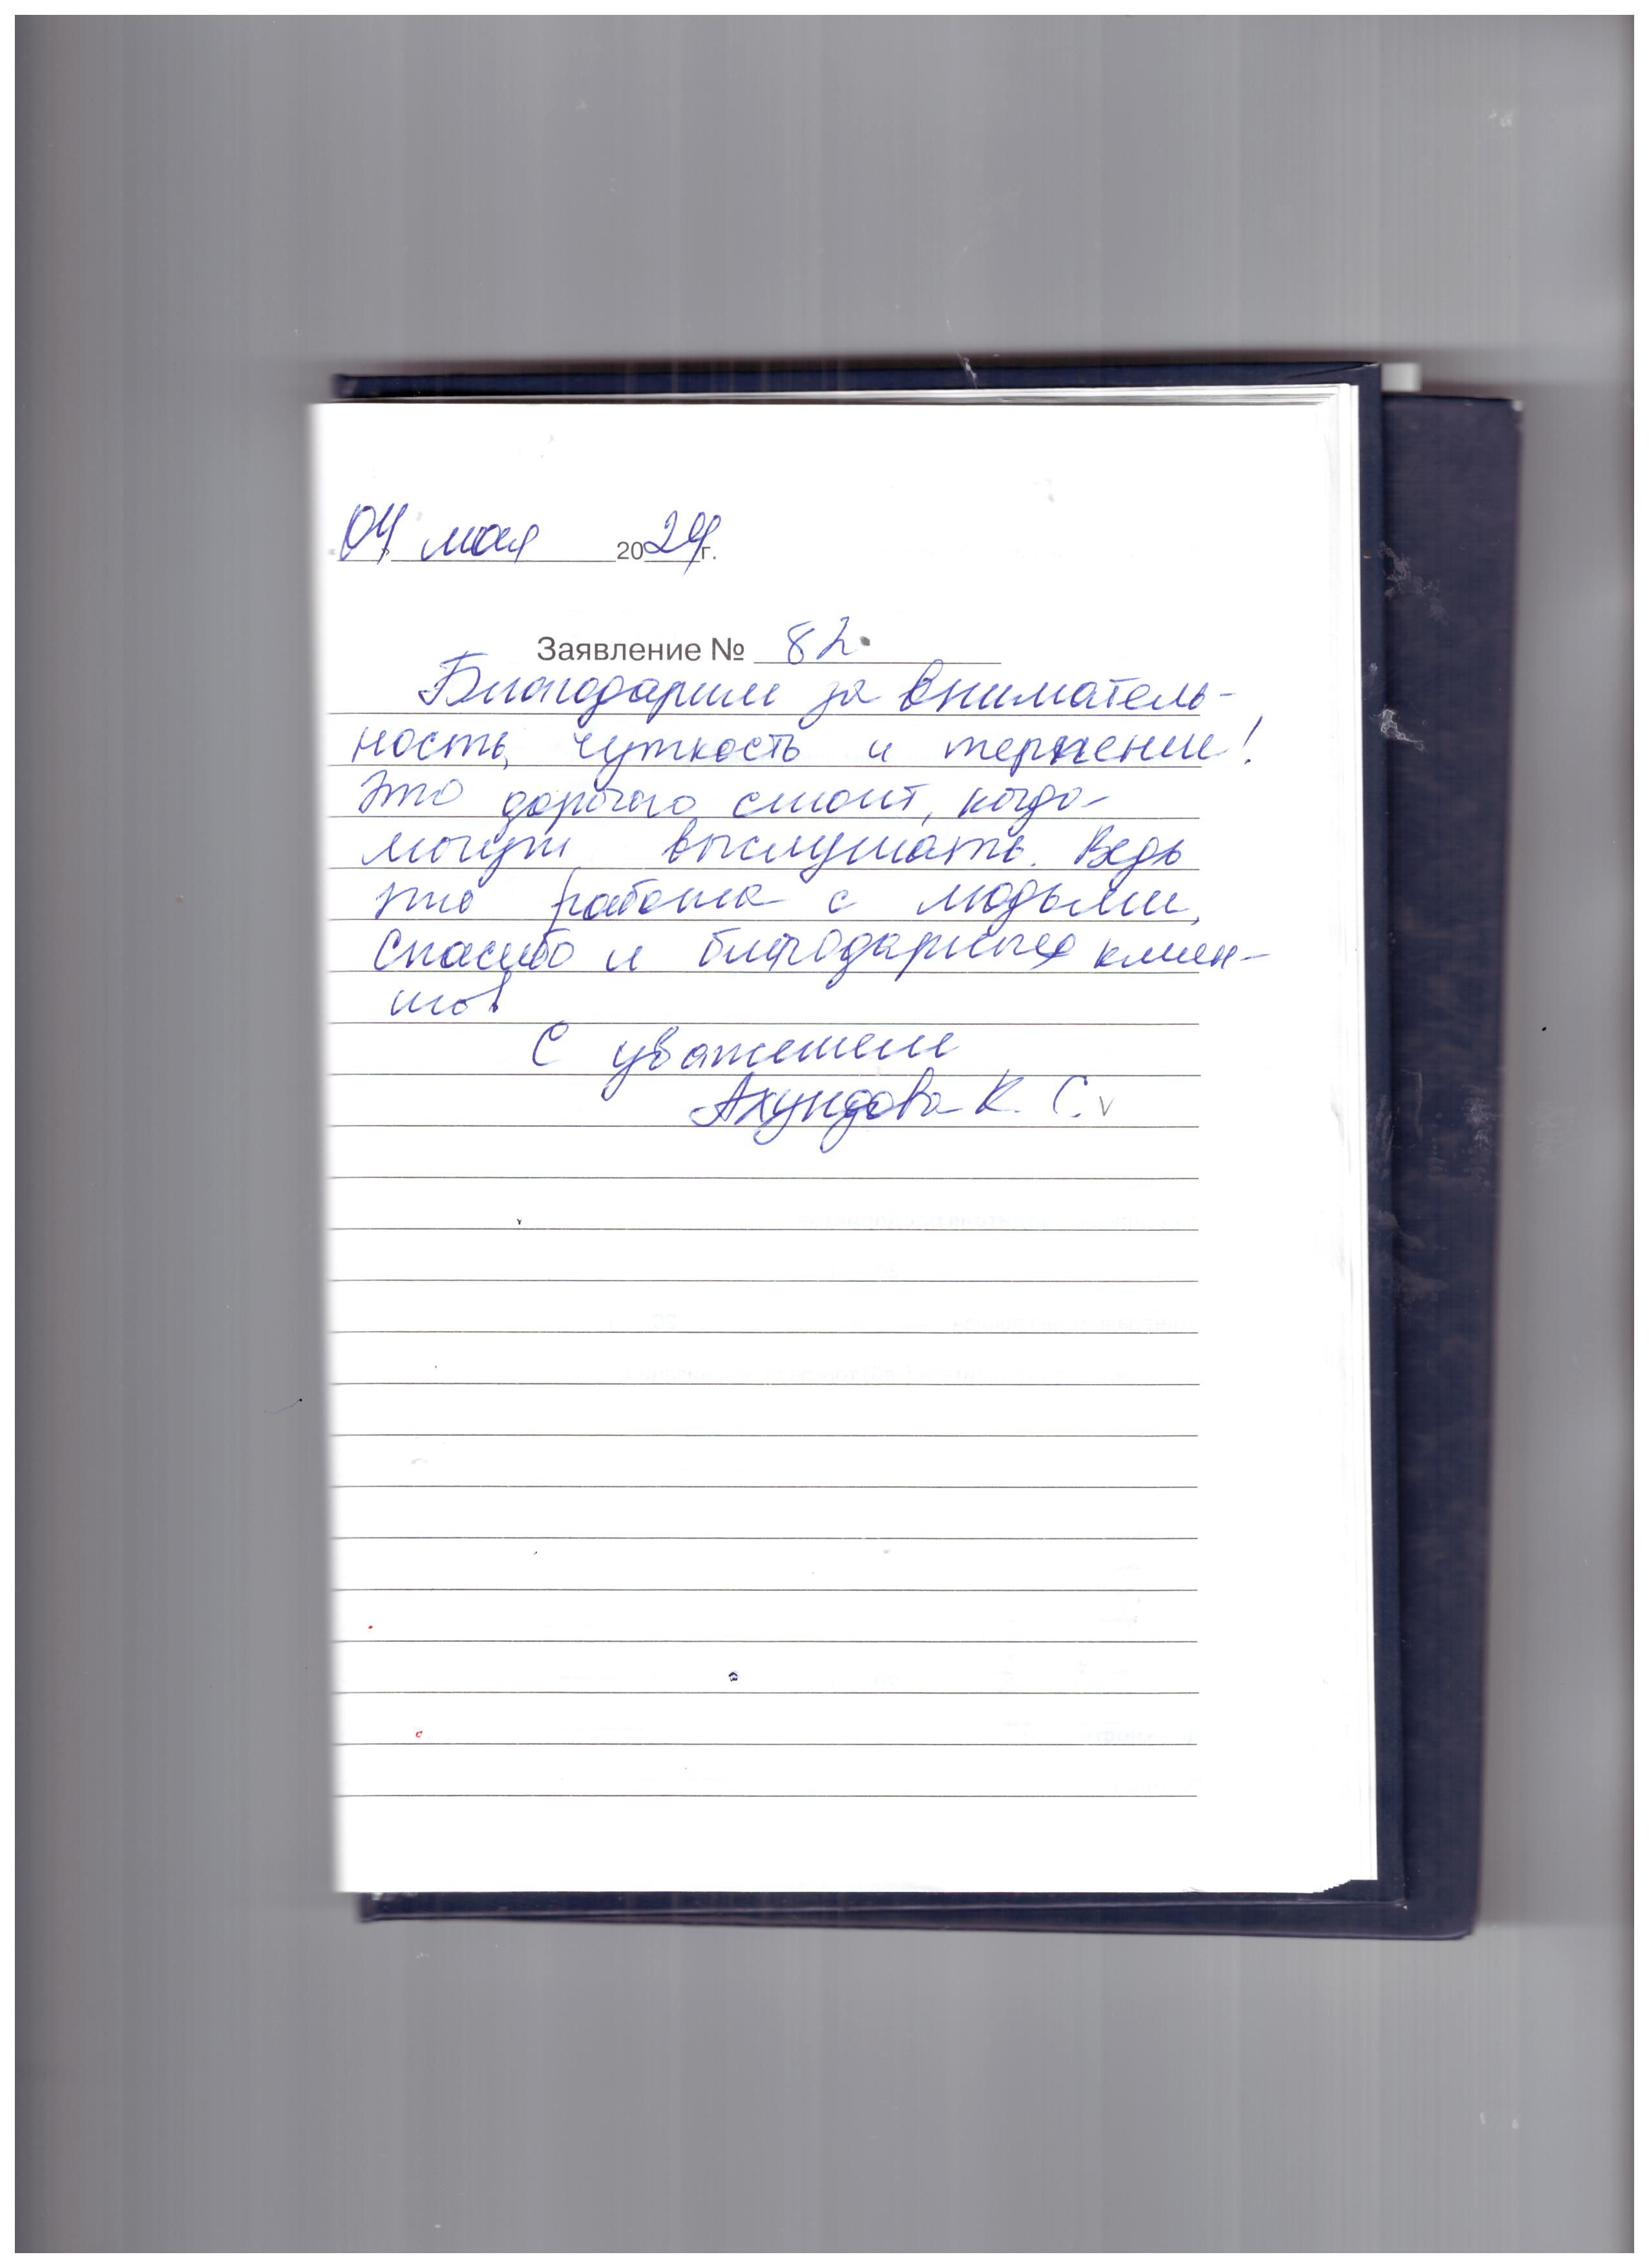 04 мая 2024г.
Заявление № 82
Благодарим за вниматель-
ность, чуткость и терпение!
Это дорого стоит, когда
могут выслушать. Ведь
это работа с людьми,
Спасибо и благодарных клиен-
тов!
С уважением
Ахундова К. С. v